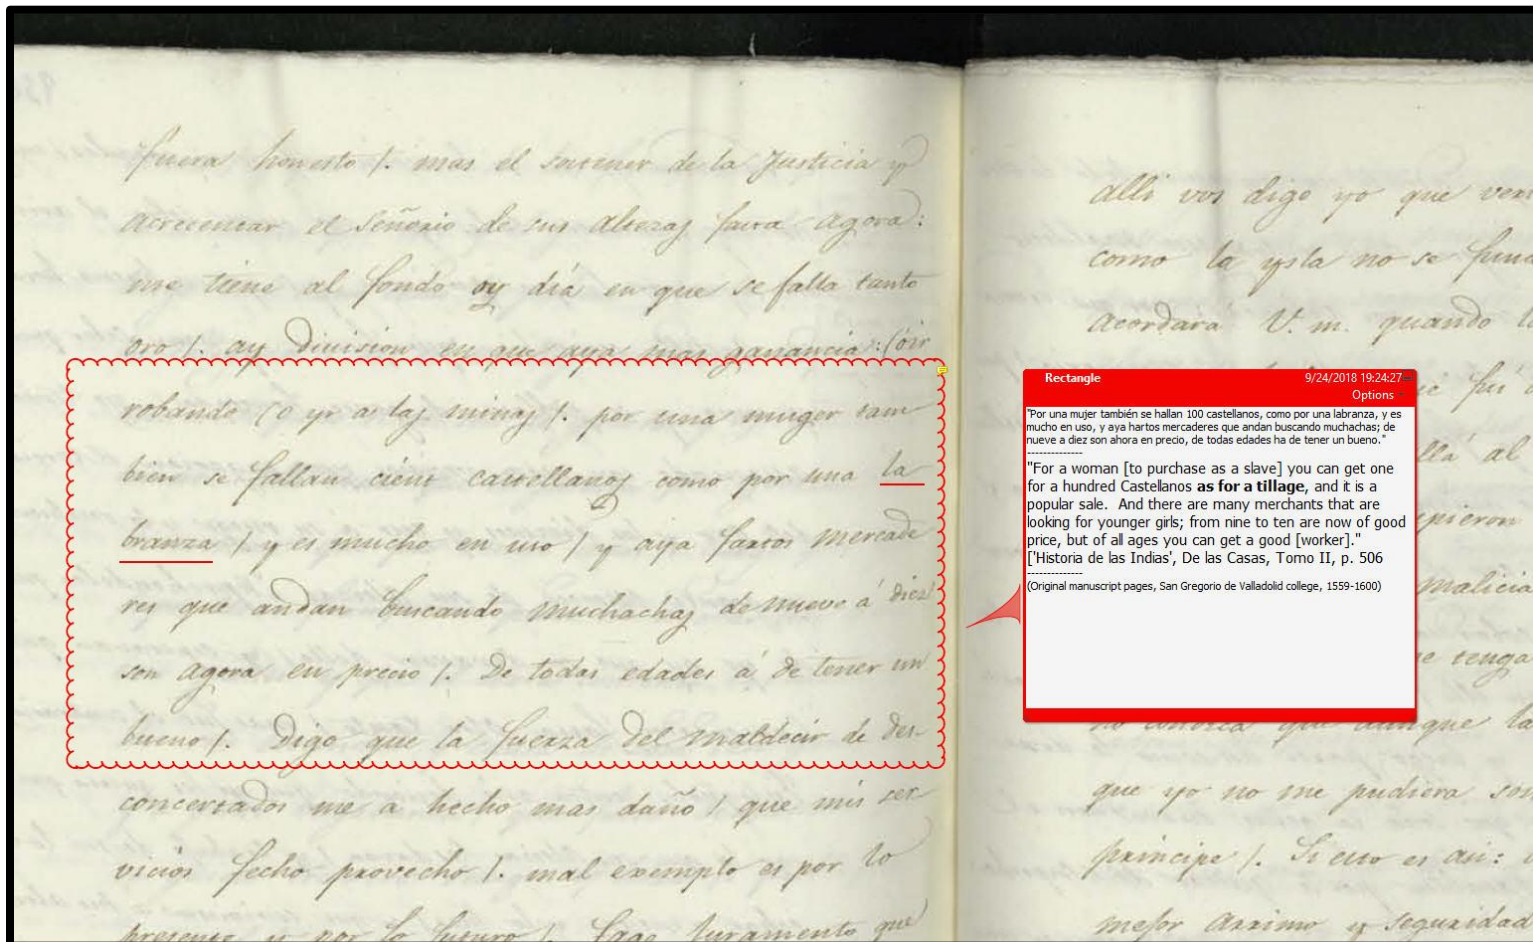 fuera honesto /. mas el sostener de la Justicia y
acrecentar el Señorio de sus Altezas fasta agora:
me tiene al fondo oy dia en que se falla tanto
oro /. ay Division en que aya mas ganancia: (ó ir
robando (o yr a las minas /. por una muger tam
bien se fallan cient castellanos como por una la
branza / y es mucho en uso / y aya fartos mercade
res que andan buscando muchachas de nueve á diez
son agora en precio /. De todas edades á de tener un
bueno /. Digo que la fuerza del maldecir de des-
concertados me a hecho mas daño / que mis ser-
vicios fecho provecho /. mal exemplo es por lo
presente y por lo futuro /. fago juramento que
alli vos digo yo que
como la ysla no se
acordará V. m. quando
fui
allá al
malicia
tenga
no conozca que aunque la
que yo no me pudiera
principe /. Si esto es asi:
mejor arrimo y seguridad
Rectangle 9/24/2018 19:24:27
Options
"Por una mujer también se hallan 100 castellanos, como por una labranza, y es
mucho en uso, y aya hartos mercaderes que andan buscando muchachas; de
nueve a diez son ahora en precio, de todas edades ha de tener un bueno."
--------------
"For a woman [to purchase as a slave] you can get one
for a hundred Castellanos as for a tillage, and it is a
popular sale. And there are many merchants that are
looking for younger girls; from nine to ten are now of good
price, but of all ages you can get a good [worker]."
['Historia de las Indias', De las Casas, Tomo II, p. 506
--------------
(Original manuscript pages, San Gregorio de Valladolid college, 1559-1600)